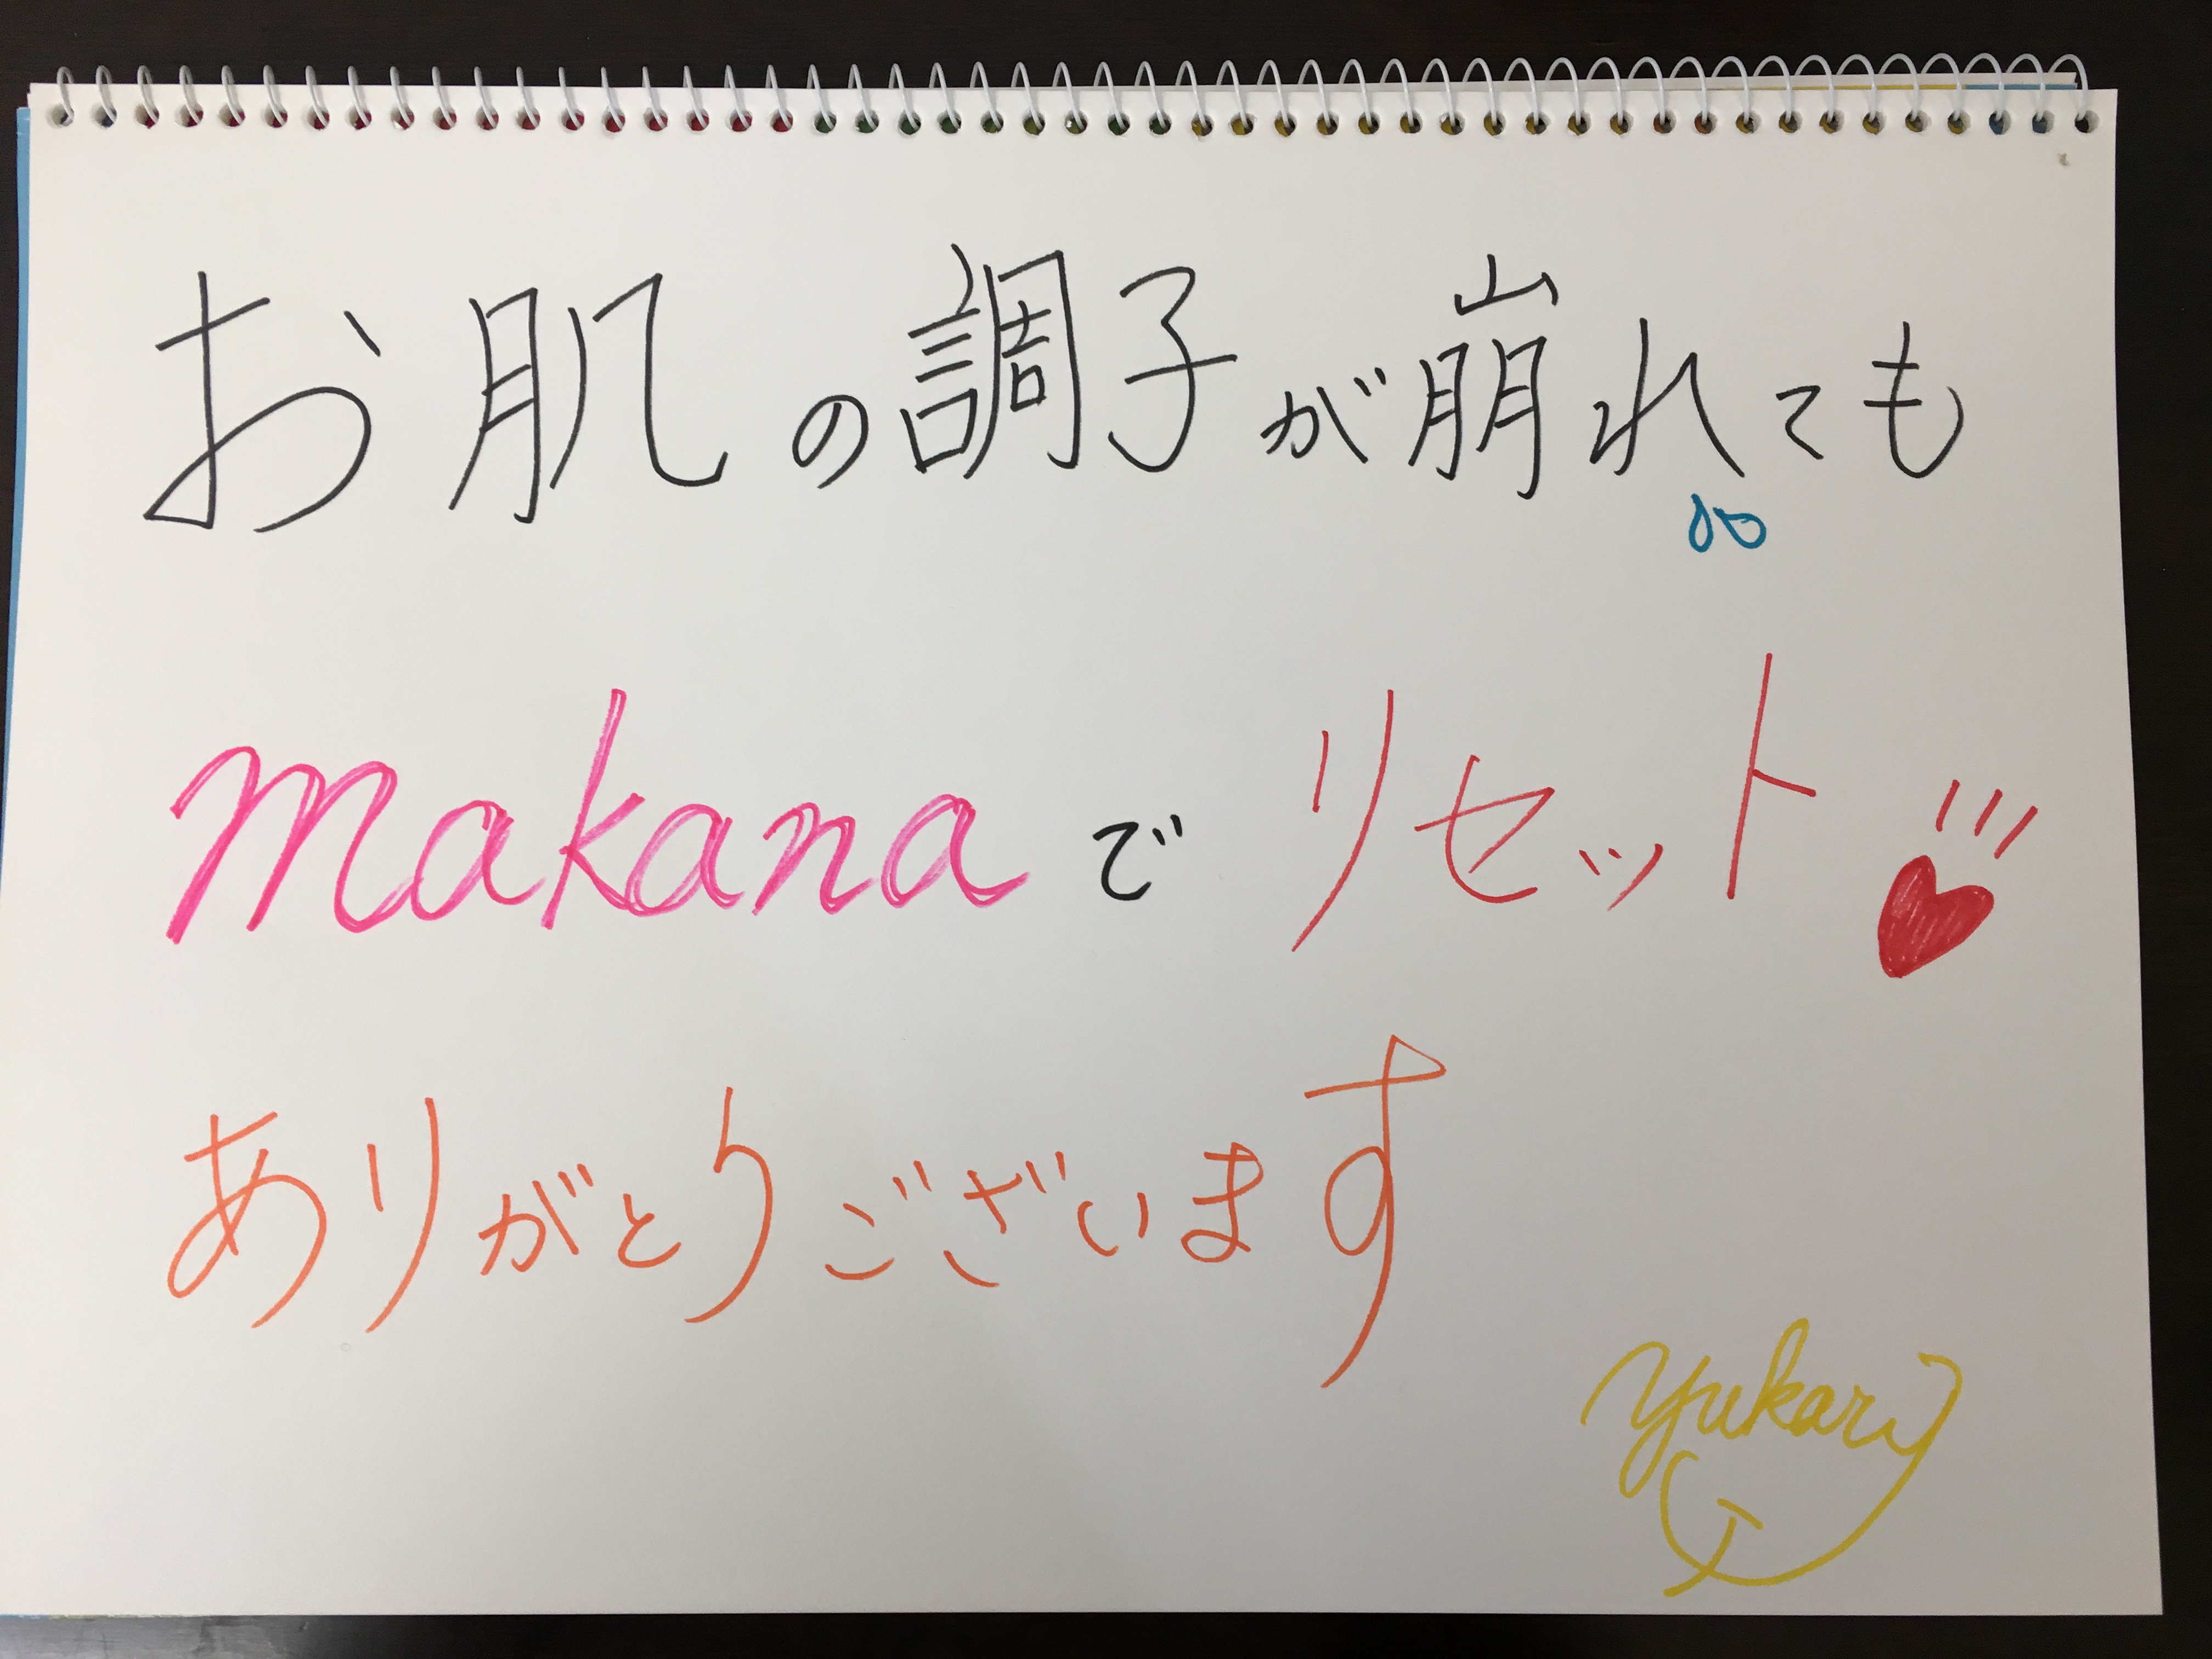 お肌の調子が崩れても
makanaでリセット
ありがとうございます
yukari